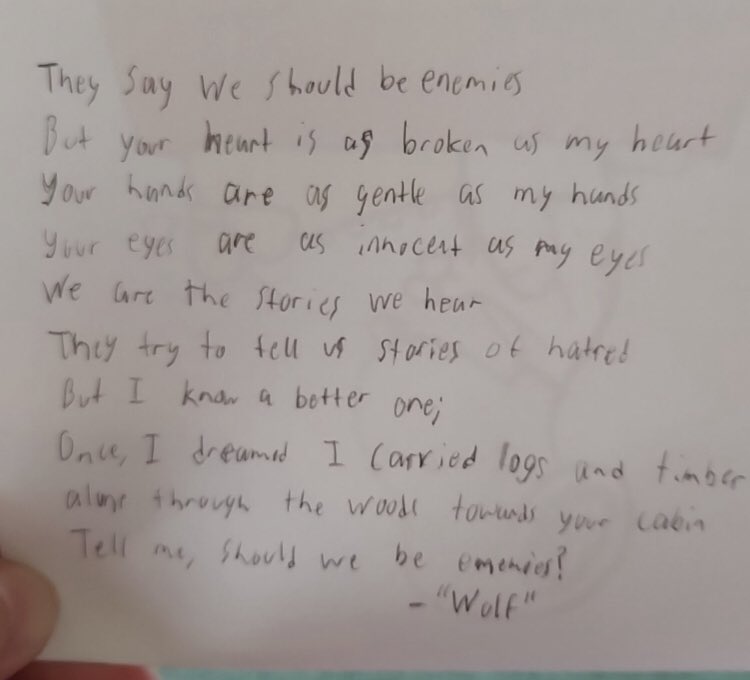 They say we should be enemies
But your heart is as broken as my heart
Your hands are as gentle as my hands
Your eyes are as innocent as my eyes
We are the stories we hear
They try to tell us stories of hatred
But I know a better one;
Once, I dreamed I carried logs and timber
alone through the woods towards your cabin
Tell me, should we be enemies?
- "Wolf"